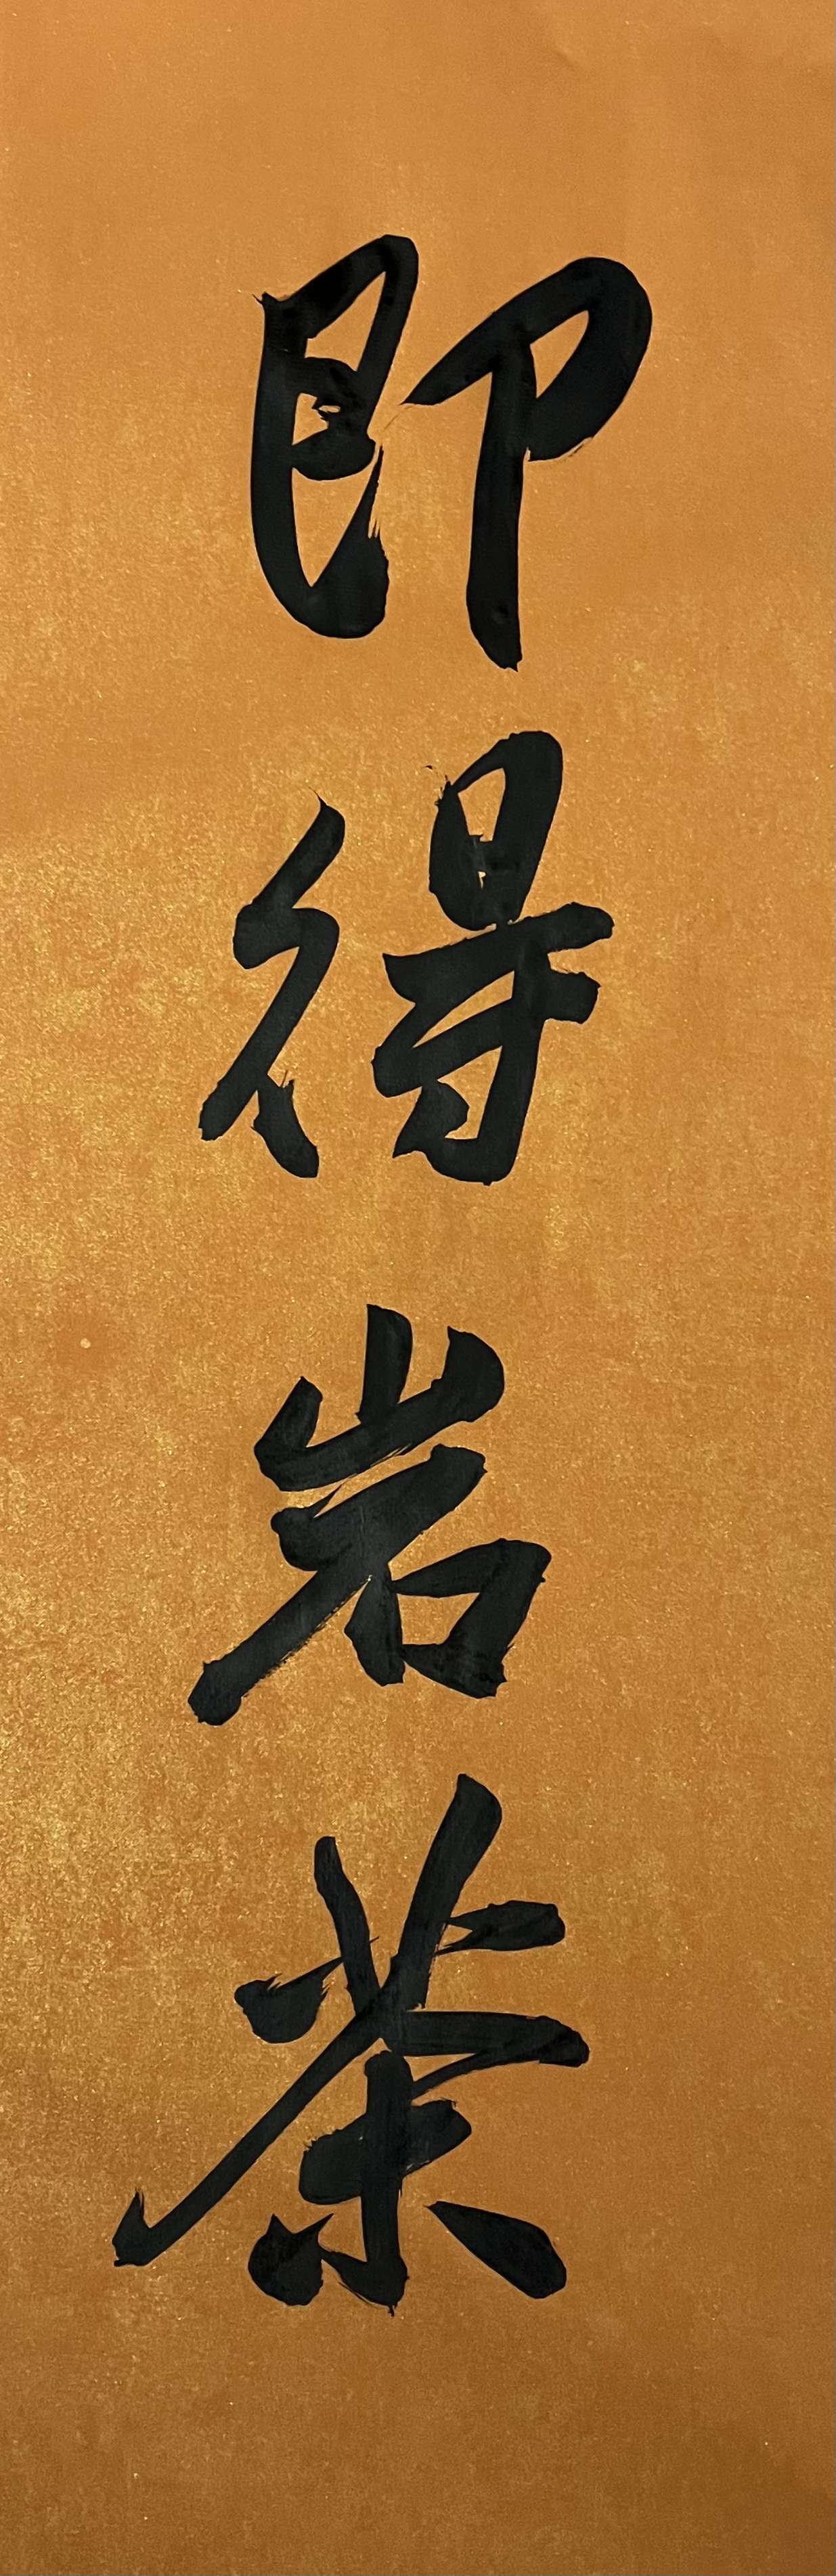 即得岩茶